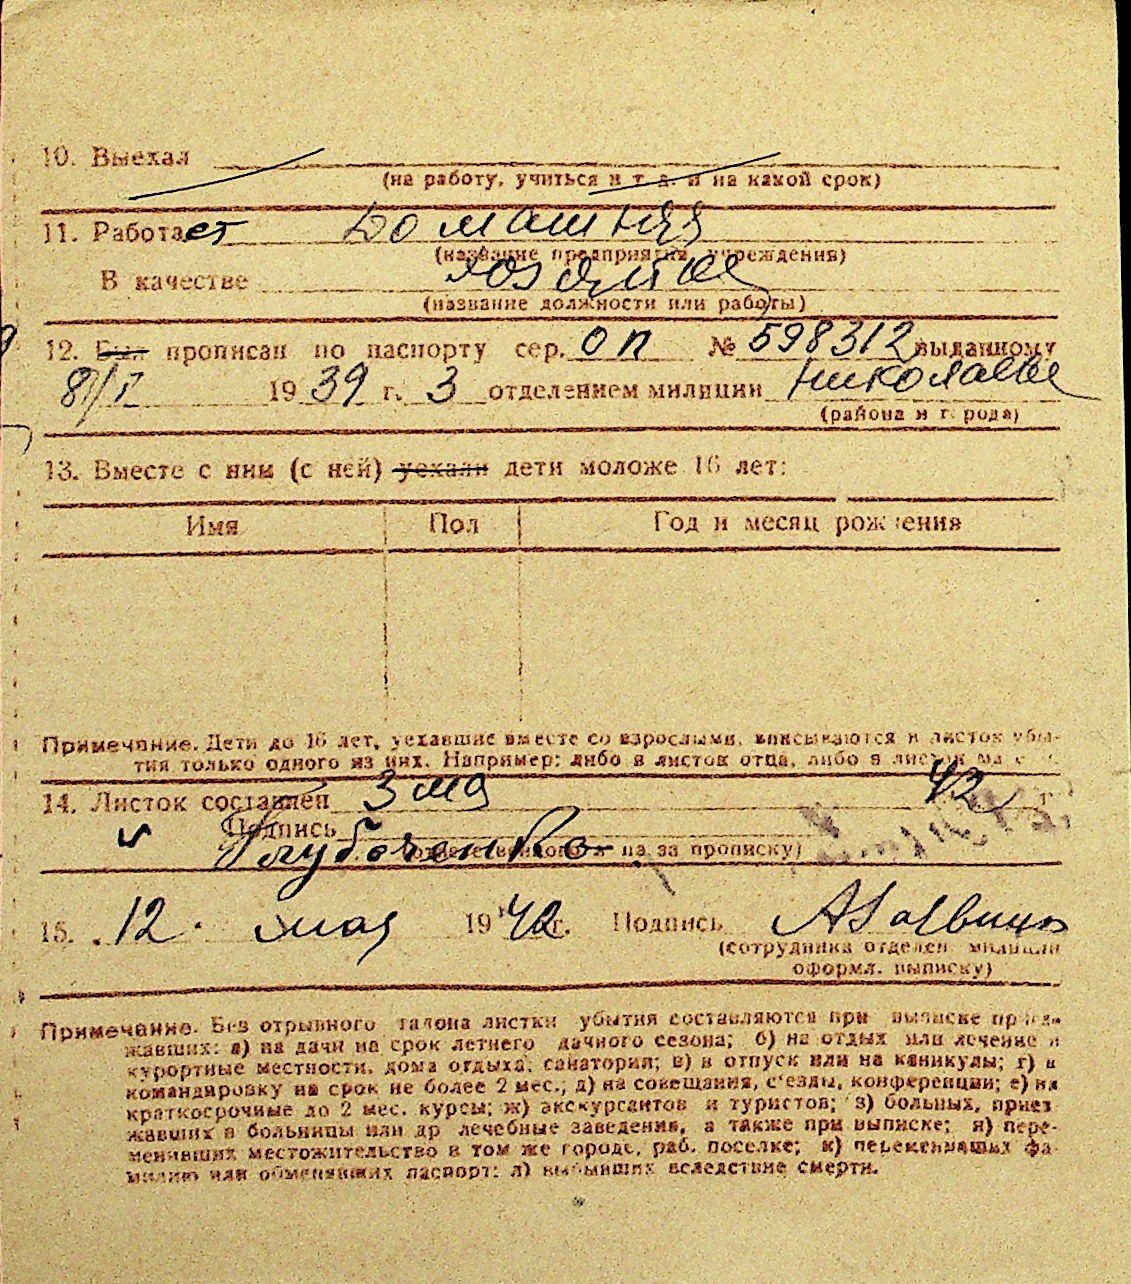 10. Выехал
(на работу, учиться и т. д. и на какой срок)
11. Работает Домашняя
(название предприятия, учреждения)
В качестве хозяйка
(название должности или работы)
12. Был прописан по паспорту сер. ОП № 598312 выданному
8/I 1939 г. 3 отделением милиции Николаеве
(района и города)
13. Вместе с ним (с ней) уехали дети моложе 16 лет:
Имя Пол Год и месяц рождения
Примечание. Дети до 16 лет, уехавшие вместе со взрослыми, вписываются в листок убы-
тия только одного из них. Например: либо в листок отца, либо в листок
14. Листок составлен 3 мая 42 г
Подпись
на за прописку)
15. 12. мая 1942 г. Подпись
(сотрудника отделен. милиции
оформл. выписку)
Примечание. Без отрывного талона листки убытия составляются при выписке приез-
жавших: а) на дачи на срок летнего дачного сезона; б) на отдых или лечение в
курортные местности, дома отдыха, санатории; в) в отпуск или на каникулы; г) в
командировку на срок не более 2 мес.; д) на совещания, с'езды, конференции; е) на
краткосрочные до 2 мес. курсы; ж) экскурсантов и туристов; з) больных, приез
жавших в больницы или др лечебные заведения, а также при выписке; и) пере-
менивших местожительство в том же городе, раб. поселке; к) переменивших фа
милию или обменявших паспорт; л) выбывших вследствие смерти.